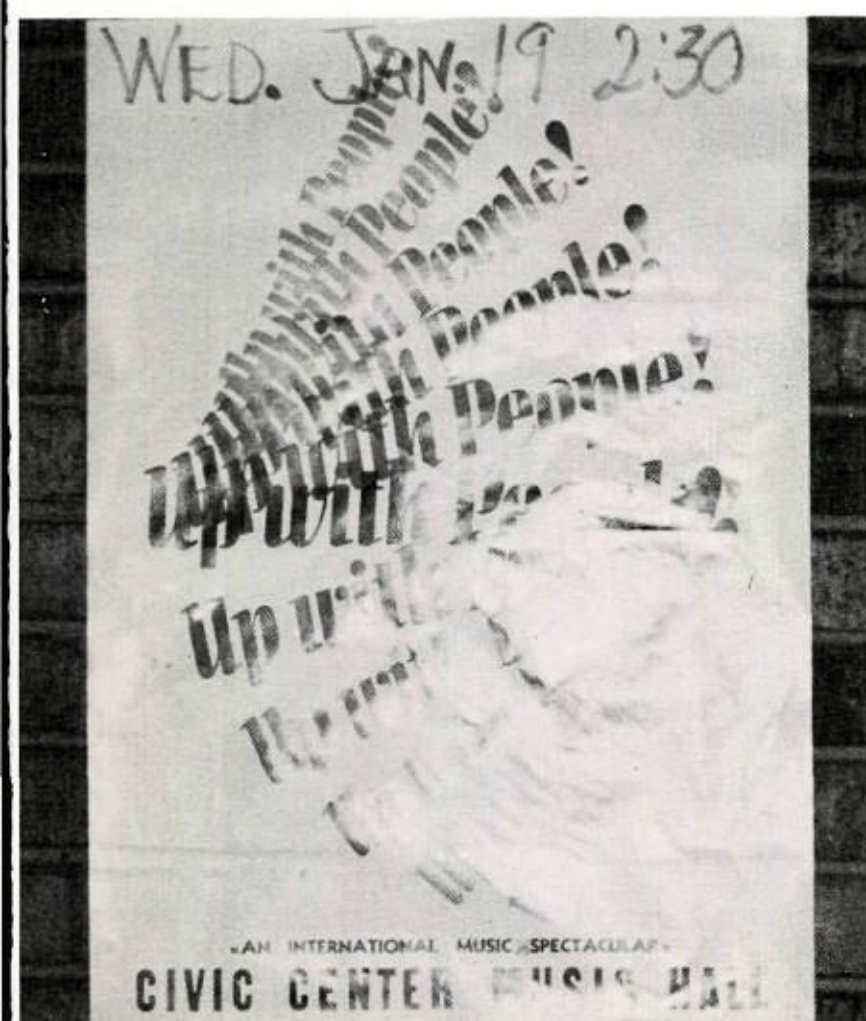 WED. JAN. 19 2:30
with People!
with People!
with People!
with People!
Up with People!
Up with
Up with
Up
AN INTERNATIONAL MUSIC SPECTACULAR
CIVIC CENTER MUSIC HALL